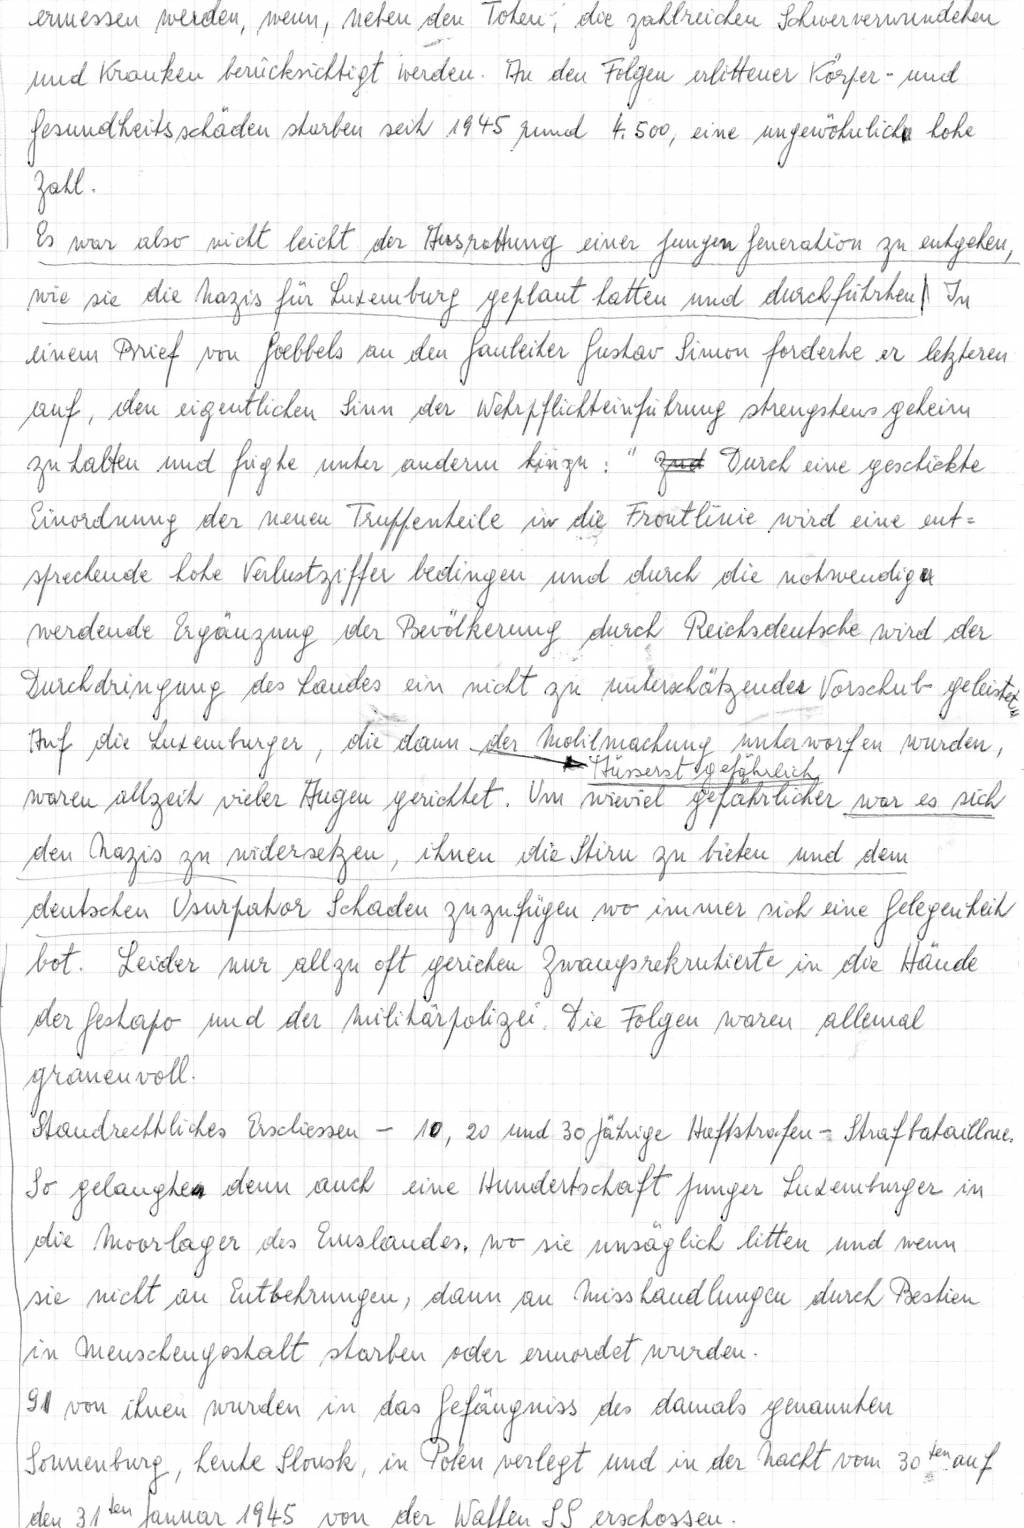 ermessen werden, wenn, neben den Toten, die zahlreichen Schwerverwundeten
und Kranken berücksichtigt werden. An den Folgen erlittener Körper- und
Gesundheitsschäden starben seit 1945 rund 4.500, eine ungewöhnlich hohe
Zahl.
Es war also nicht leicht der Ausrottung einer jungen Generation zu entgehen,
wie sie die Nazis für Luxemburg geplant hatten und durchführten! In
einem Brief von Goebbels an den Gauleiter Gustav Simon forderte er letzteren
auf, den eigentlichen Sinn der Wehrpflichteinführung strengstens geheim
zu halten und fügte unter anderm hinzu: " Durch eine geschickte
Einordnung der neuen Truppenteile in die Frontlinie wird eine ent=
sprechende hohe Verlustziffer bedingen und durch die notwendig
werdende Ergänzung der Bevölkerung durch Reichsdeutsche wird der
Durchdringung des Landes ein nicht zu unterschätzender Vorschub geleistet"
Auf die Luxemburger, die dann der Mobilmachung unterworfen wurden,
Äusserst gefährlich
waren allzeit vieler Augen gerichtet. Um wieviel gefährlicher war es sich
den Nazis zu widersetzen, ihnen die Stirn zu bieten und dem
deutschen Usurpator Schaden zuzufügen wo immer sich eine Gelegenheit
bot. Leider nur allzu oft gerieten Zwangsrekrutierte in die Hände
der Gestapo und der Militärpolizei. Die Folgen waren allemal
grauenvoll.
Standrechtliches Erschiessen - 10, 20 und 30 jährige Haftstrafen - Strafbataillone.
So gelangten denn auch eine Hundertschaft junger Luxemburger in
die Moorlager des Emslandes, wo sie unsäglich litten und wenn
sie nicht an Entbehrungen, dann an Misshandlungen durch Bestien
in Menschengestalt starben oder ermordet wurden.
91 von ihnen wurden in das Gefängniss des damals genannten
Sonnenburg, heute Slonsk, in Polen verlegt und in der Nacht vom 30ten auf
den 31ten Januar 1945 von der Waffen SS erschossen.